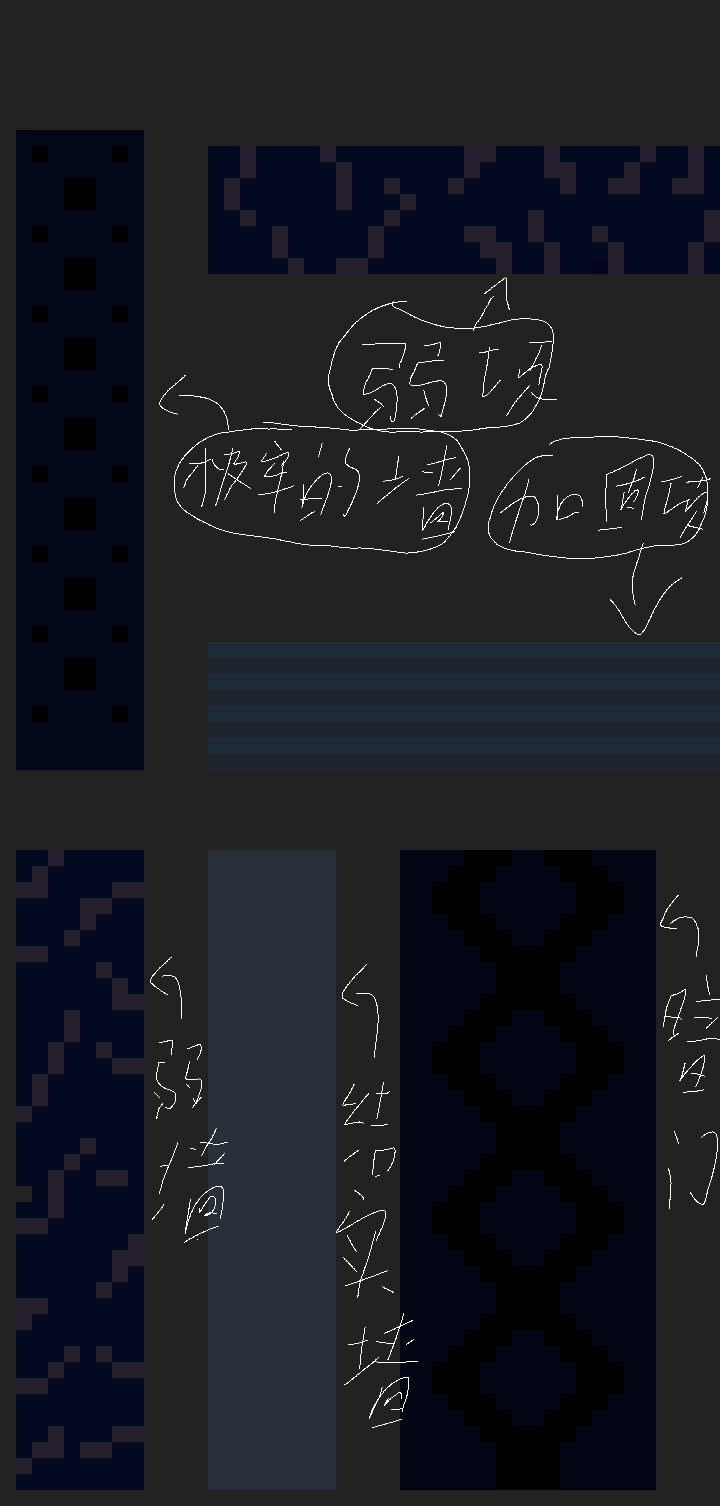 弱顶
极牢的墙
加固顶
弱墙
结实墙
暗门